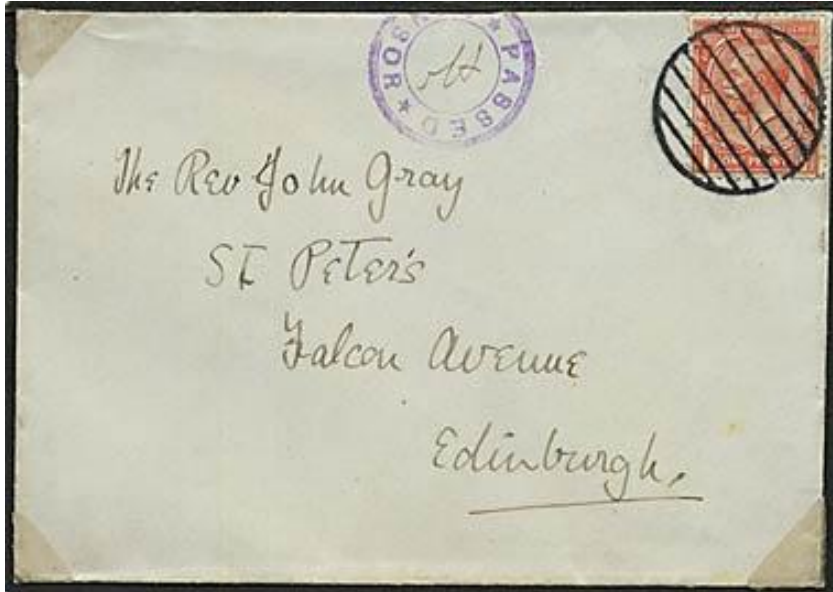 PASSED
The Rev John Gray
St Peter's
Falcon Avenue
Edinburgh.